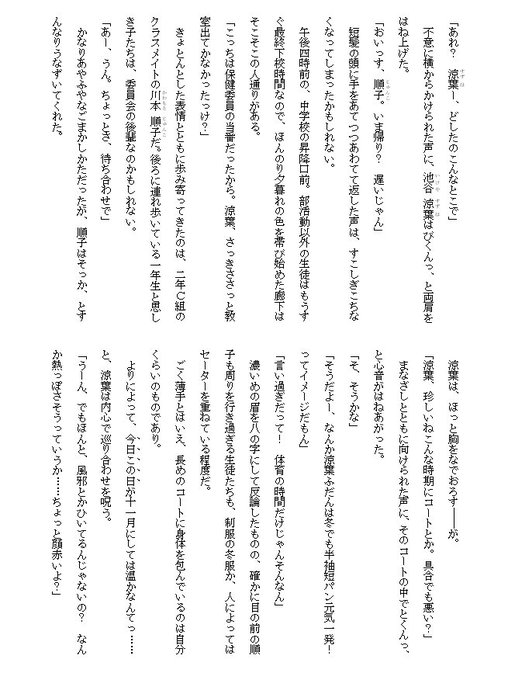 「あれ？　涼葉ー、どしたのこんなとこで」
不意に横からかけられた声に、池谷　涼葉はびくんっ、と両肩を
はね上げた。
「おいっす、順子。いま帰り？　遅いじゃん」
短髪の頭に手をあてつつあわてて返した声は、すこしぎこちな
くなってしまったかもしれない。
午後四時前の、中学校の昇降口前。部活動以外の生徒はもうす
ぐ最終下校時間なので、ほんのり夕暮れの色を帯び始めた廊下は
そこそこの人通りがある。
「こっちは保健委員の当番だったから。涼葉、さっきささっと教
室出てかなかったっけ？」
きょとんとした表情とともに歩み寄ってきたのは、二年Ｃ組の
クラスメイトの川本　順子だ。後ろに連れ歩いている一年生と思し
き子たちは、委員会の後輩なのかもしれない。
「あー、うん。ちょっとさ、待ち合わせで」
かなりあやふやなごまかしかただったが、順子はそっか、とす
んなりうなずいてくれた。
涼葉は、ほっと胸をなでおろす――が。
「涼葉、珍しいねこんな時期にコートとか。具合でも悪い？」
まなざしとともに向けられた声に、そのコートの中でとくんっ、
と心音がはねあがった。
「そ、そうかな」
「そうだよー、なんか涼葉ふだんは冬でも半袖短パン元気一発！
ってイメージだもん」
「言い過ぎだって！　体育の時間だけじゃんそんなん」
濃いめの眉を八の字にして反論したものの、確かに目の前の順
子も周りを行き過ぎる生徒たちも、制服の冬服か、人によっては
セーターを重ねている程度だ。
ごく薄手とはいえ、長めのコートに身体を包んでいるのは自分
くらいのものであり。
よりによって、今日この日が十一月にしては温かなんてっ……
と、涼葉は内心で巡り合わせを呪う。
「うーん、でもほんと、風邪とかひいてるんじゃないの？　なん
か熱っぽさそうっていうか……ちょっと顔赤いよ？」